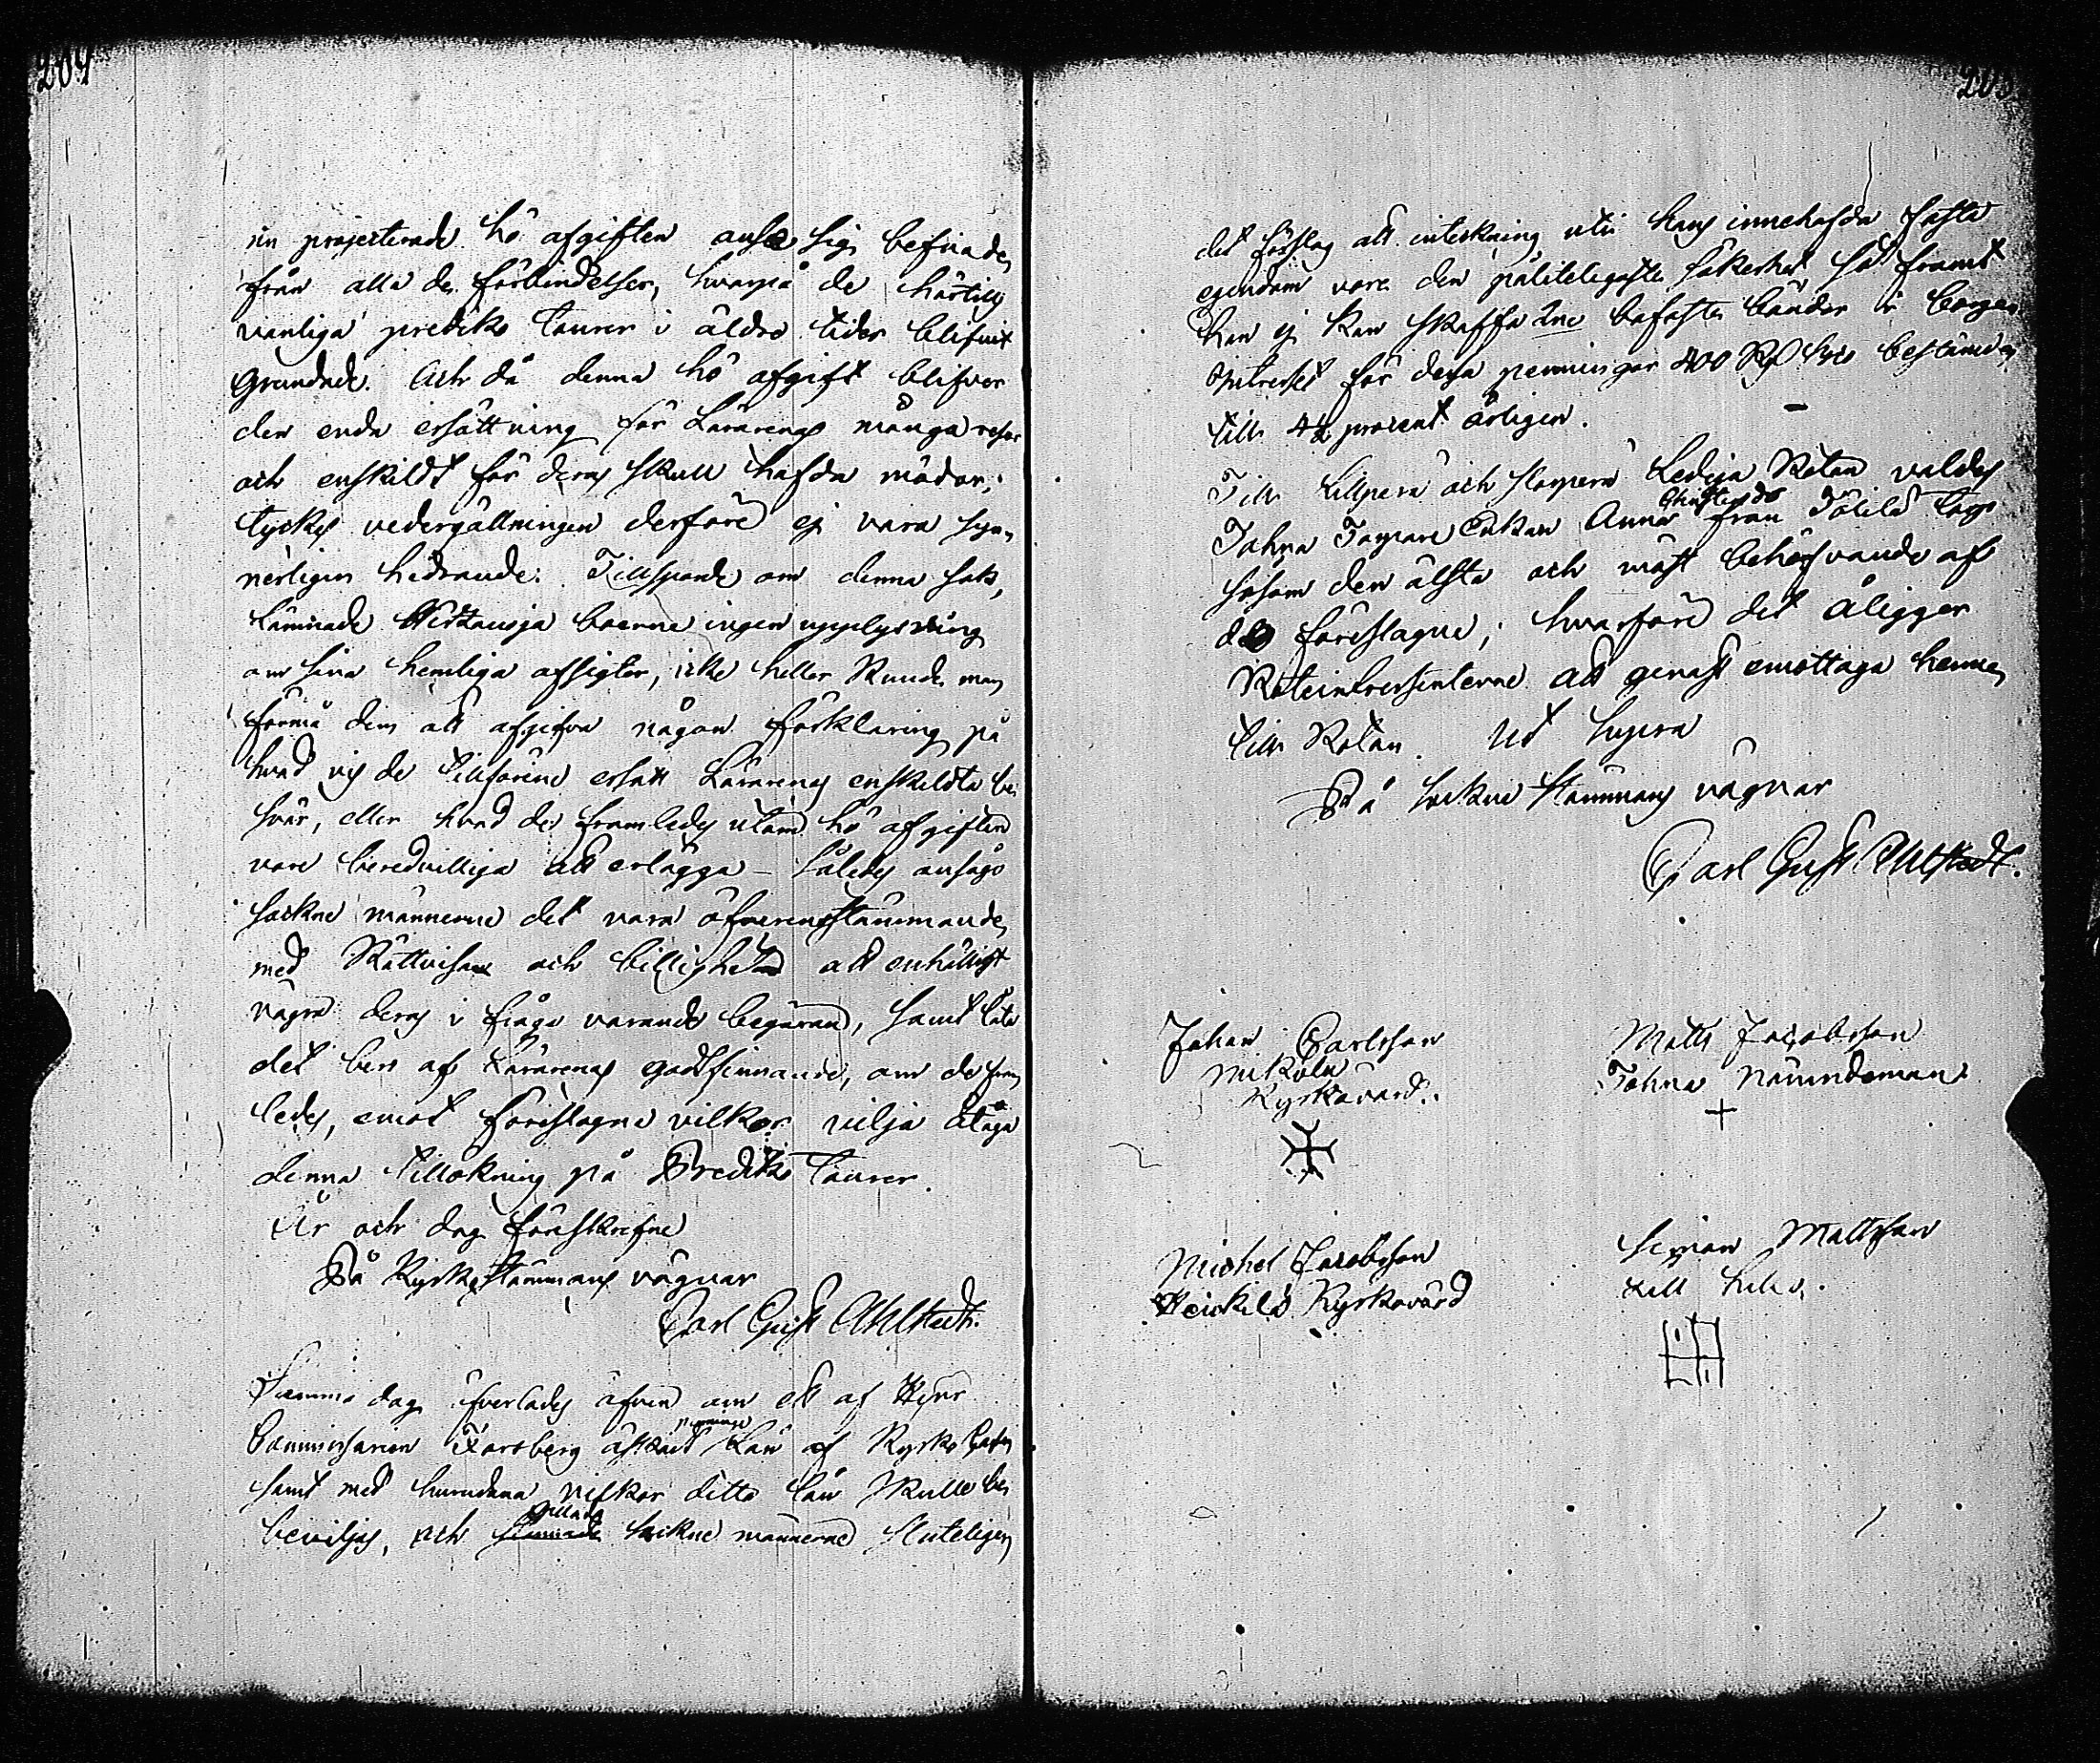 204
nu projecterade hö afgiften anse sig befriade
från alla de förbindelser, hvarpå de härtills
vanliga prediko tourer i äldre tider blifvit
grundade. Och då denna hö afgift blifver
den enda ersättning för Lärarens många resor
och enskildt för deras skull hafda mödor,
tyckes vedergällningen derföre ej vara syn-
nerligen hedrande. Tillsporde om denna sak,
lämnade boerne ingen upplysning
om sina hemliga afsigter, icke heller kunde man
förmå dem att afgifva någon förklaring på
hvad vis de tillförene ersatt Lärarens enskildta be-
svär, eller hvad de framledes utom hö afgiften
vore beredvilliga att erlägga – Således ansågo
sockne männerne det vara öfverensstämmande
med Rättvisan och billigheten att enhälligt
vägra deras i fråga varande begäran, samt låta
det bero af Lärarens godtfinnande, om de fram-
ledes, emot föreslagne vilkor vilja åtaga
denna tillökning på Prediko tourer.
År och dag föreskrefne
På Kyrkostämmans vägnar
Carl Gust Ahlstedt.
Samma dag öfverlades äfven om ett af Herr
Commissarien Forsberg äskadt pennings Lån af Kyrko
samt med hurudana vilkor detta lån skulle be-
beviljas, och gillade sockne männerne sluteligen
205
det förslag att inteckning uti hans innehafda fasta
egendom vore den pålitligaste säkerhet så framt
han ej kan skaffa 2ne bofasta bönder i borgen
Intresset för dessa penningar 400 Rbl. bestämdes
till procent årligen.
Till Killpera och Karpera Lediga Rotan valdes
Johna Enkan Anna från
såsom den älsta och mäst behöfvande af
de föreslagne; hvarföre det åligger
Roteintressenterne att genast emottaga henne
till Rotan. Ut supra
På Sockne Stämmans vägnar
Carl Gust Ahlstedt.
Johan Carlsson
Mikola
Kyrkovärd.
Matts Jacobsson
Johna Nämndeman
Michel Jacobsson
Heickilä Kyrkovärd
Simon Mattsson